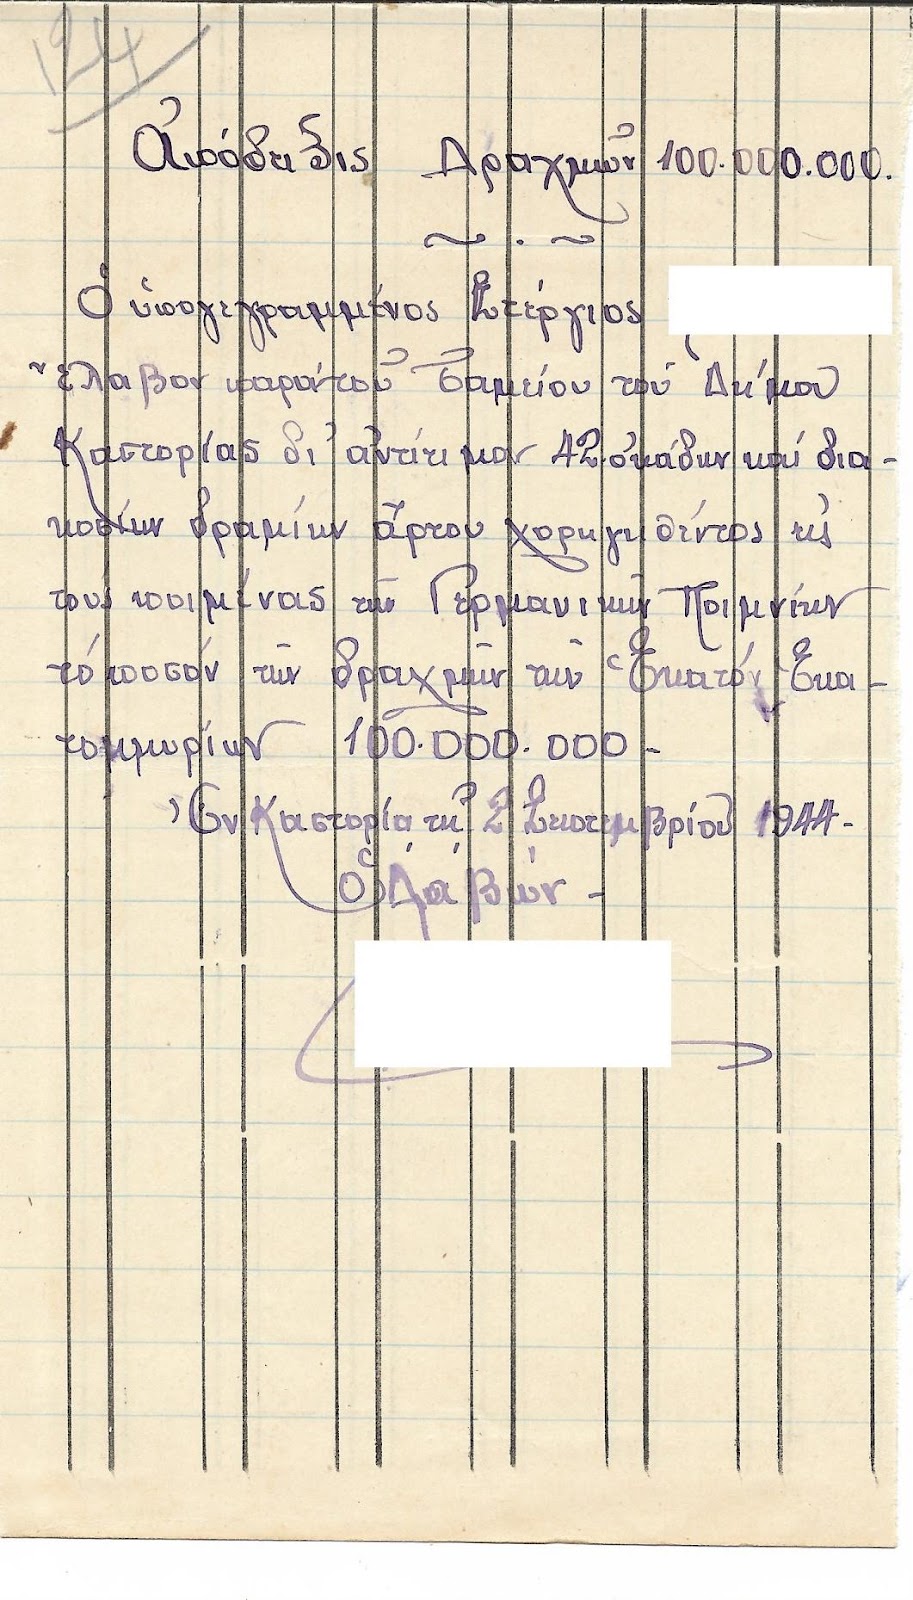 124
Ἀπόδειξις Δραχμῶν 100.000.000.
Ὁ ὑπογεγραμμένος Στέργιος
ἔλαβον παρὰ τοῦ Ταμείου τοῦ Δήμου
Καστορίας δι' ἀντίτιμον 42 ὀκάδων καὶ δια-
κοσίων δραμίων ἄρτου χορηγηθέντος εἰς
τους ποιμένας τῶν Γερμανικῶν Ποιμνίων
τό ποσόν τῶν δραχμῶν τῶν Ἑκατόν Ἑκα-
τομμυρίων 100.000.000-
Ἐν Καστορίᾳ τῇ 2 Σεπτεμβρίου 1944-
Ὁ Λαβών-